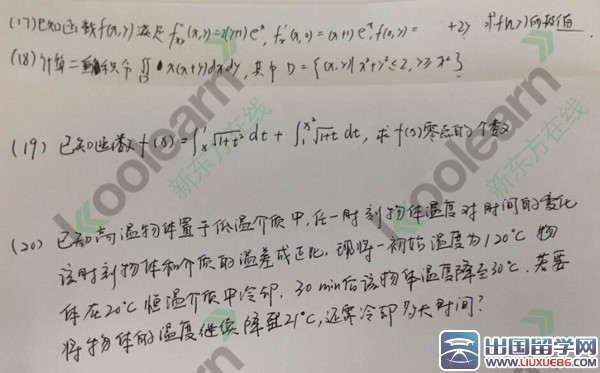 (17)已知函数f(x,y)满足 f''xy(x,y)=2(y+1)e^x, f'x(x,0)=(x+1)e^x, f(0,y)= +2y 求f(x,y)的极值.
(18)计算二重积分 ∬D x(x+y)dxdy, 其中 D={(x,y)|x²+y²≤2, y≥x²}
(19) 已知函数 f(x)=∫x^1 √1+t² dt + ∫1^x² √1+t dt, 求 f(x)零点的个数
(20) 已知高温物体置于低温介质中,任一时刻物体温度对时间的变化
该时刻物体和介质的温差成正比,现将一初始温度为120℃ 物
体在20℃恒温介质中冷却, 30 min后该物体温度降至30℃. 若要
将物体的温度继续降至21℃,还需冷却多长时间?
koolearn
新东方在线
koolearn
新东方在线
koolearn
新东方在线
出国留学网
WWW.LIUXUE86.COM